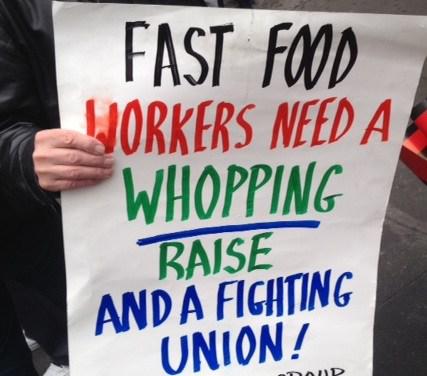 FAST FOOD
WORKERS NEED A
WHOPPING
RAISE
AND A FIGHTING
UNION!